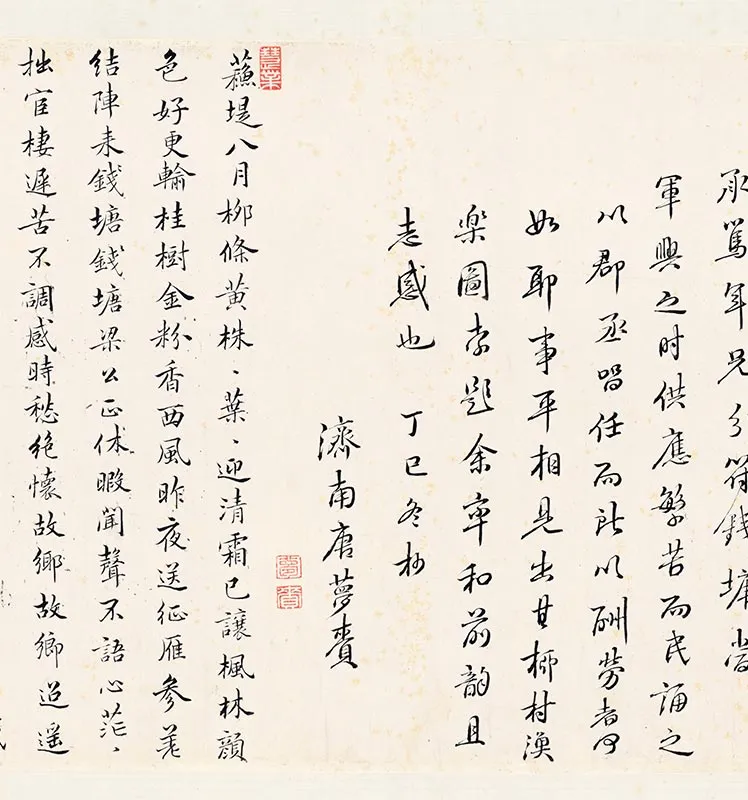 承篤年兄分符錢塘當
軍興之时供應繁苦而民誦之
以郡丞留任而所以酬勞者何
如耶事平相見出其柳村漁
樂圖索題余率和前韵且
志感也 丁巳冬杪
濟南唐夢賚
蘓堤八月柳條黄株、葉、迎清霜已讓楓林顔
色好更輸桂樹金粉香西風昨夜送征雁參差
結陣来錢塘錢塘梁公正休暇聞聲不語心茫、
拙宦棲遲苦不調感時愁絶懷故鄉故鄉迢遥